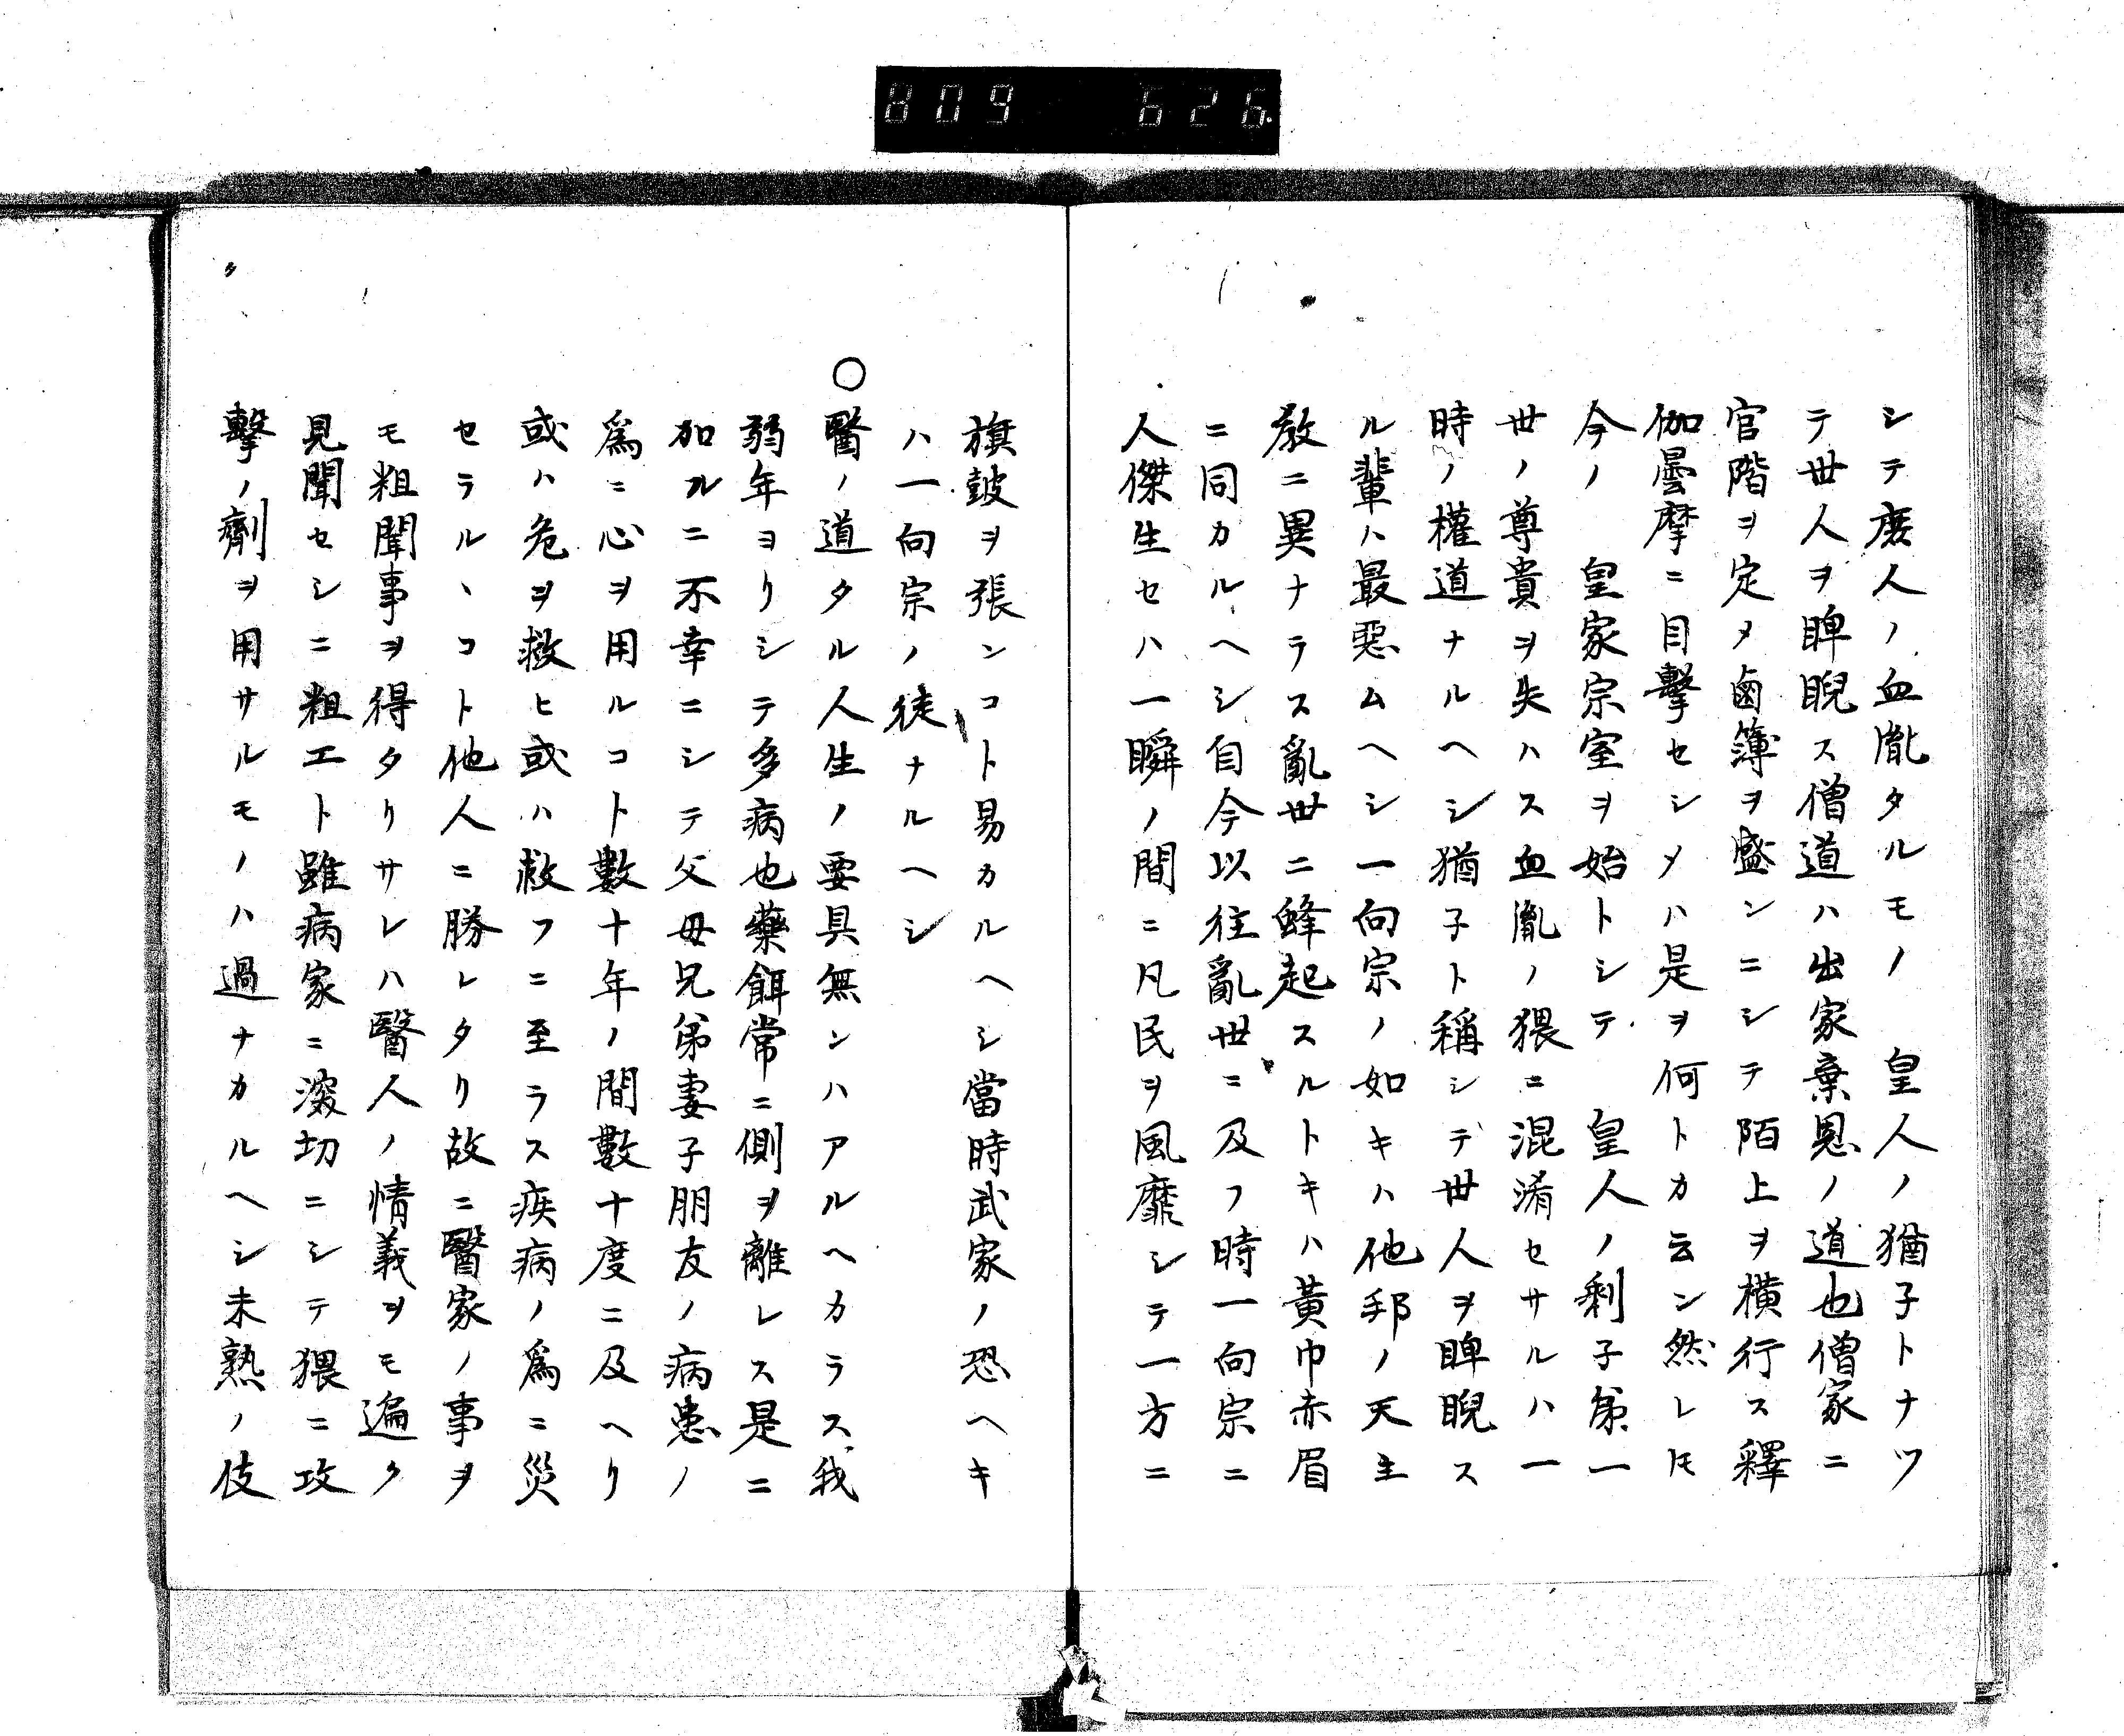 809 626
シテ庶人ノ血胤タルモノ 皇人ノ猶子トナツ
テ世人ヲ睥睨ス僧道ハ出家棄恩ノ道也僧家ニ
官階ヲ定メ鹵簿ヲ盛ンニシテ陌上ヲ横行ス釋
伽曇摩ニ目擊セシメハ是ヲ何トカ云ン然レ𪜈
今ノ 皇家宗室ヲ始トシテ 皇人ノ剩子第一
世ノ尊貴ヲ失ハス血胤ノ猥ニ混淆セサルハ一
時ノ權道ナルヘシ猶子ト稱シテ世人ヲ睥睨ス
ル輩ハ最惡ムヘシ一向宗ノ如キハ他邦ノ天主
敎ニ異ナラス亂世ニ蜂起スルトキハ黃巾赤眉
ニ同カルヘシ自今以往亂世ニ及フ時一向宗ニ
人傑生セハ一瞬ノ間ニ凡民ヲ風靡シテ一方ニ
旗皷ヲ張ンコト易カルヘシ當時武家ノ恐ヘキ
ハ一向宗ノ徒ナルヘシ
○醫ノ道タル人生ノ要具無ンハアルヘカラス我
弱年ヨリシテ多病也藥餌常ニ側ヲ離レス是ニ
加ルニ不幸ニシテ父母兄弟妻子朋友ノ病患ノ
爲ニ心ヲ用ルコト數十年ノ間數十度ニ及ヘリ
或ハ危ヲ救ヒ或ハ救フニ至ラス疾病ノ爲ニ災
セラルヽコト他人ニ勝レタリ故ニ醫家ノ事ヲ
モ粗聞事ヲ得タリサレハ醫人ノ情義ヲモ遍ク
見聞セシニ粗工ト雖病家ニ深切ニシテ猥ニ攻
擊ノ劑ヲ用サルモノハ過ナカルヘシ未熟ノ伎